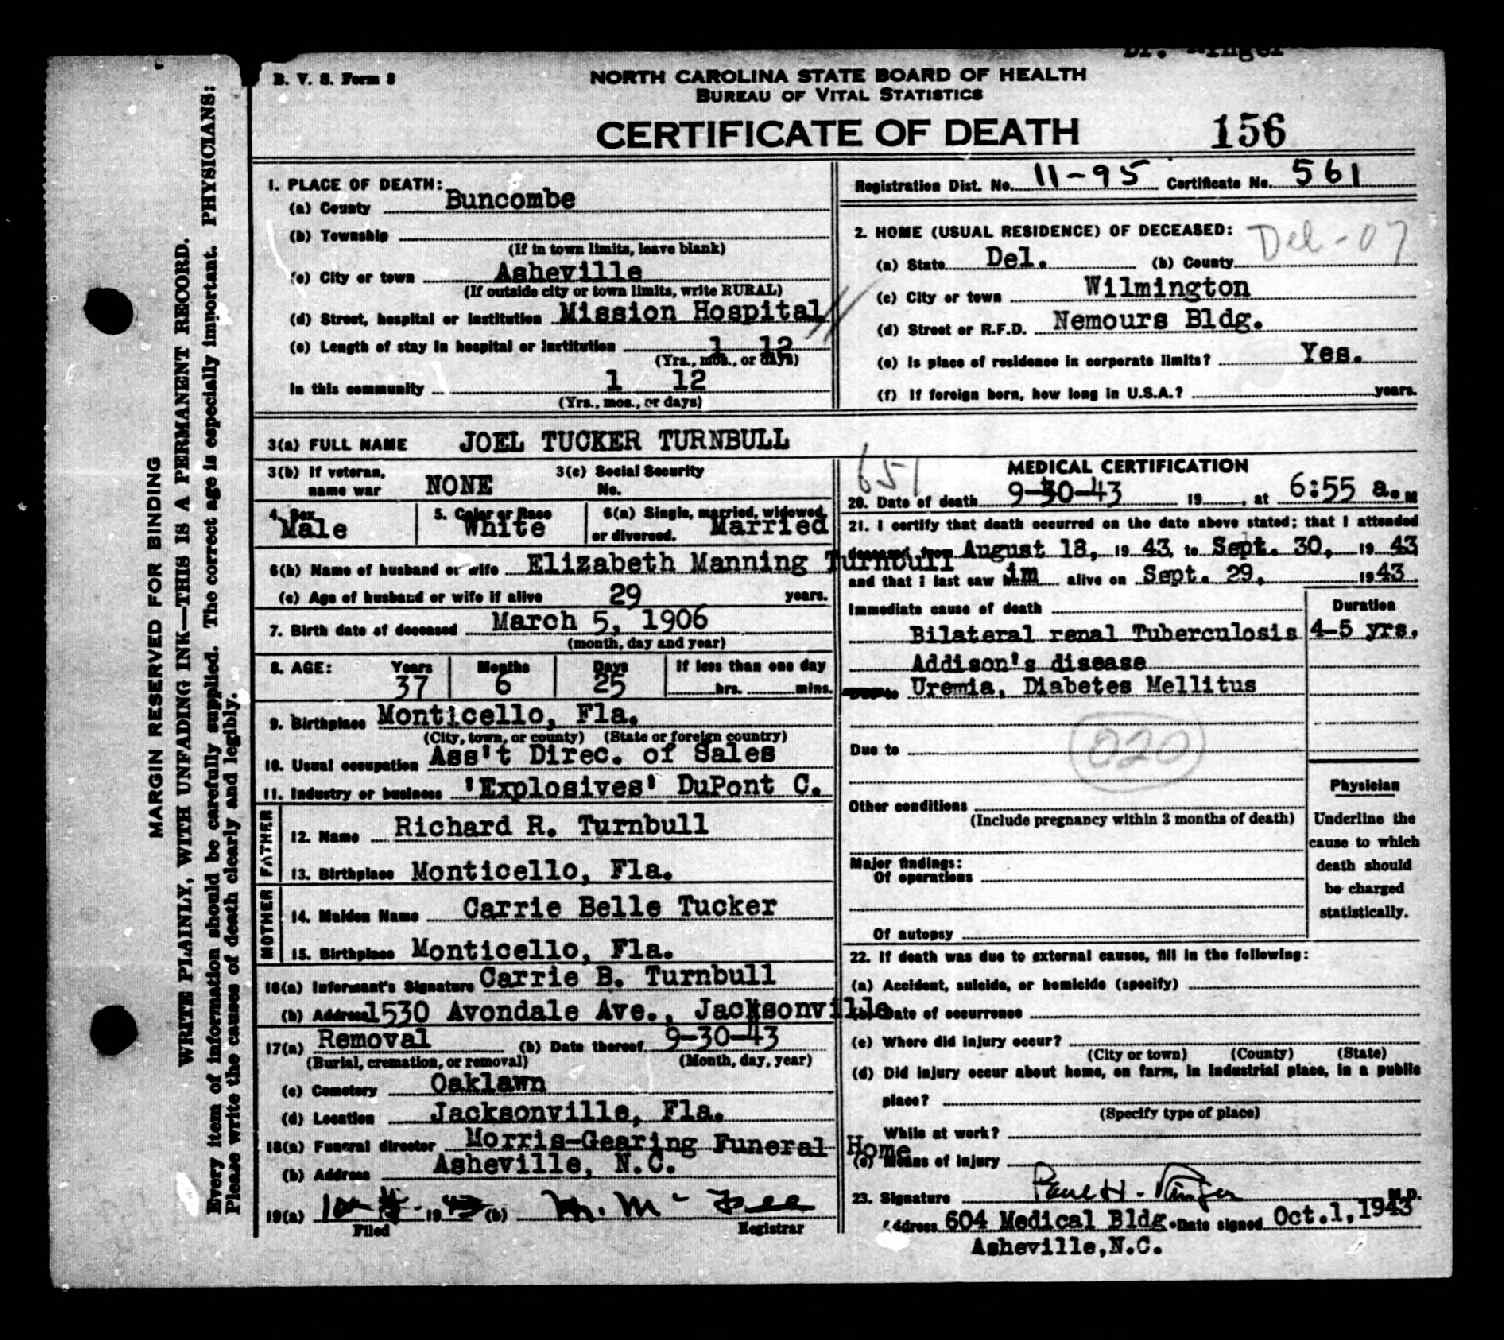 B. V. S. Form 8
NORTH CAROLINA STATE BOARD OF HEALTH
BUREAU OF VITAL STATISTICS
CERTIFICATE OF DEATH 156
Registration Dist. No. 11-95 Certificate No. 561
1. PLACE OF DEATH:
(a) County Buncombe
(b) Township
(If in town limits, leave blank)
(c) City or town Asheville
(If outside city or town limits, write RURAL)
(d) Street, hospital or institution Mission Hospital
(e) Length of stay in hospital or institution 1 12
(Yrs., mos., or days)
In this community 1 12
(Yrs., mos., or days)
2. HOME (USUAL RESIDENCE) OF DECEASED: Del-07
(a) State Del. (b) County
(c) City or town Wilmington
(d) Street or R.F.D. Nemours Bldg.
(e) Is place of residence in corporate limits? Yes.
(f) If foreign born, how long in U.S.A.? years.
3(a) FULL NAME JOEL TUCKER TURNBULL
3(b) If veteran, name war NONE 3(c) Social Security No.
4. Sex Male 5. Color or Race White 6(a) Single, married, widowed or divorced. Married
6(b) Name of husband or wife Elizabeth Manning Turnbull
(c) Age of husband or wife if alive 29 years.
7. Birth date of deceased March 5, 1906
(month, day and year)
8. AGE: Years 37 Months 6 Days 25 If less than one day hrs. mins.
9. Birthplace Monticello, Fla.
(City, town, or county) (State or foreign country)
10. Usual occupation Ass't Direc. of Sales
11. Industry or business 'Explosives' DuPont C.
FATHER
12. Name Richard R. Turnbull
13. Birthplace Monticello, Fla.
MOTHER
14. Maiden Name Carrie Belle Tucker
15. Birthplace Monticello, Fla.
16(a) Informant's Signature Carrie B. Turnbull
(b) Address 1530 Avondale Ave., Jacksonville
17(a) Removal (b) Date thereof 9-30-43
(Burial, cremation, or removal) (Month, day, year)
(c) Cemetery Oaklawn
(d) Location Jacksonville, Fla.
18(a) Funeral director Morris-Gearing Funeral Home
(b) Address Asheville, N.C.
19(a) 19 43 (b)
Filed Registrar
651
MEDICAL CERTIFICATION
20. Date of death 9-30-43 19 , at 6:55 a.M
21. I certify that death occurred on the date above stated; that I attended
deceased from August 18, 19 43, to Sept. 30, 19 43
and that I last saw him alive on Sept. 29, 19 43
Immediate cause of death Duration
Bilateral renal Tuberculosis 4-5 yrs.
Addison's disease
Uremia, Diabetes Mellitus
020
Due to
Other conditions
(Include pregnancy within 3 months of death)
Major findings:
Of operations
Of autopsy
Physician
Underline the
cause to which
death should
be charged
statistically.
22. If death was due to external causes, fill in the following:
(a) Accident, suicide, or homicide (specify)
(b) Date of occurrence
(c) Where did injury occur?
(City or town) (County) (State)
(d) Did injury occur about home, on farm, in industrial place, in a public
place?
(Specify type of place)
While at work?
(e) Means of injury
23. Signature Paul H. Ringer M.D.
Address 604 Medical Bldg. Date signed Oct.1,1943
Asheville,N.C.
MARGIN RESERVED FOR BINDING
WRITE PLAINLY, WITH UNFADING INK—THIS IS A PERMANENT RECORD.
Every item of information should be carefully supplied. The correct age is especially important. PHYSICIANS:
Please write the causes of death clearly and legibly.